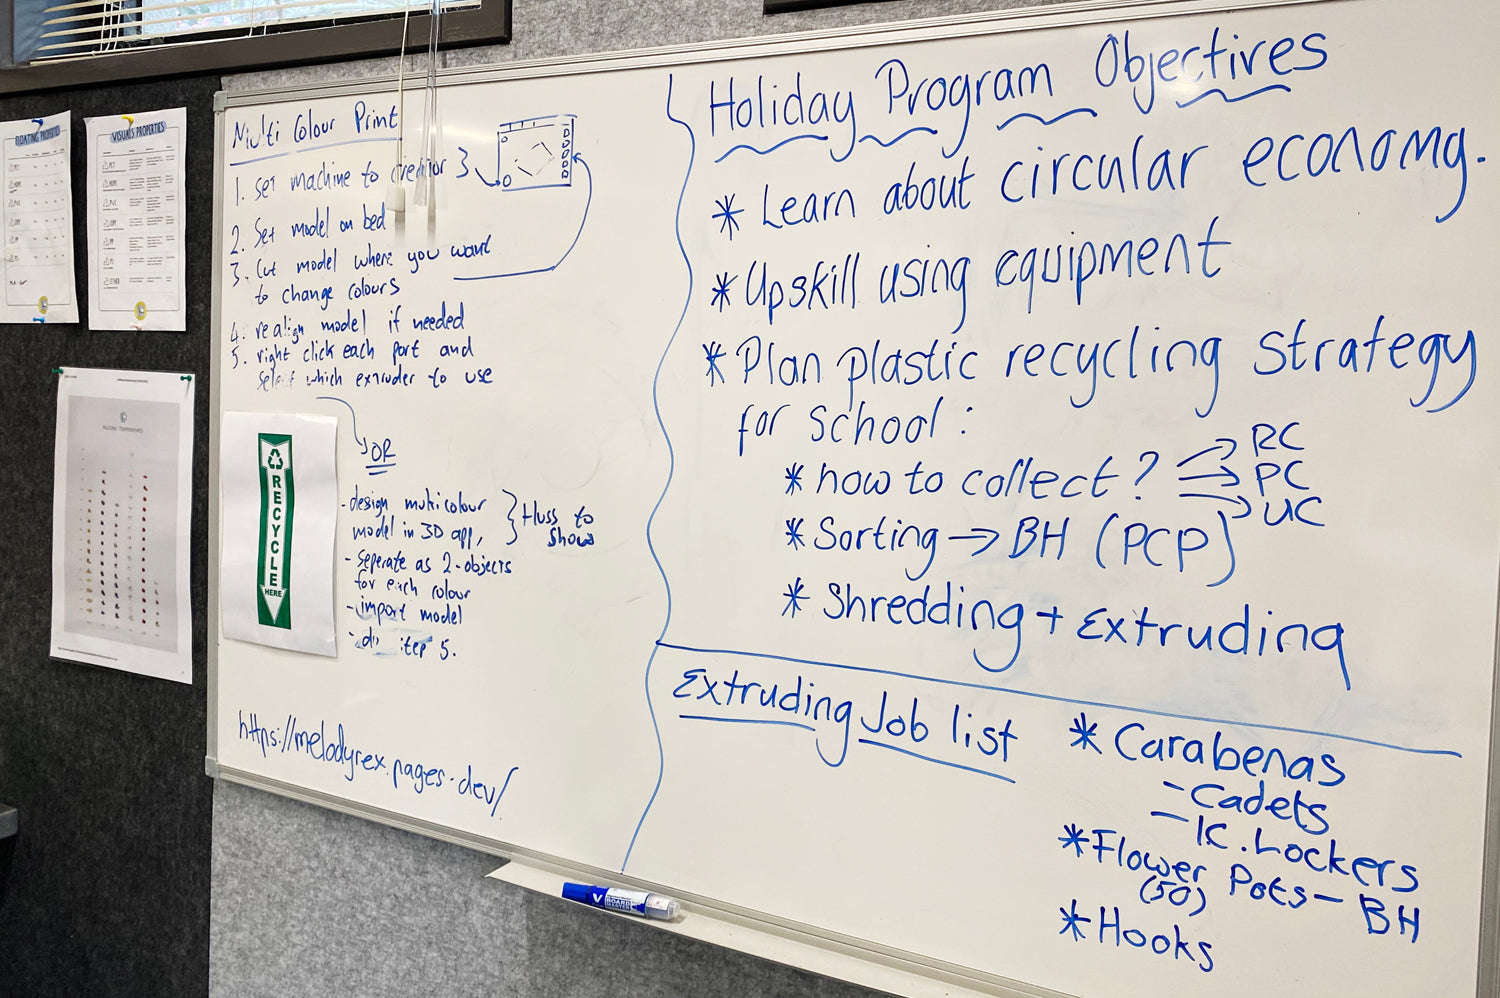 FLOATING PROPERTIES
VISUALS PROPERTIES
MELTING TEMPERATURES
Multi Colour Print
1. Set machine to creator 3
2. Set model on bed
3. Cut model where you want
to change colours
4. realign model if needed
5. right click each part and
select which extruder to use
OR
- design multicolour
model in 3D app,
} Huss to
show
- seperate as 2-objects
for each colour
- import model
- do step 5.
RECYCLE
HERE
https://melodyrex.pages.dev/
Holiday Program Objectives
* Learn about circular economy.
* Upskill using equipment
* Plan plastic recycling strategy
for school :
* how to collect ? → RC
→ PC
→ UC
* Sorting → BH (PCP)
* Shredding + Extruding
Extruding Job list
* Carabenas
- Cadets
- IC. Lockers
* Flower Pots - BH
(50)
* Hooks
V BOARD MASTER